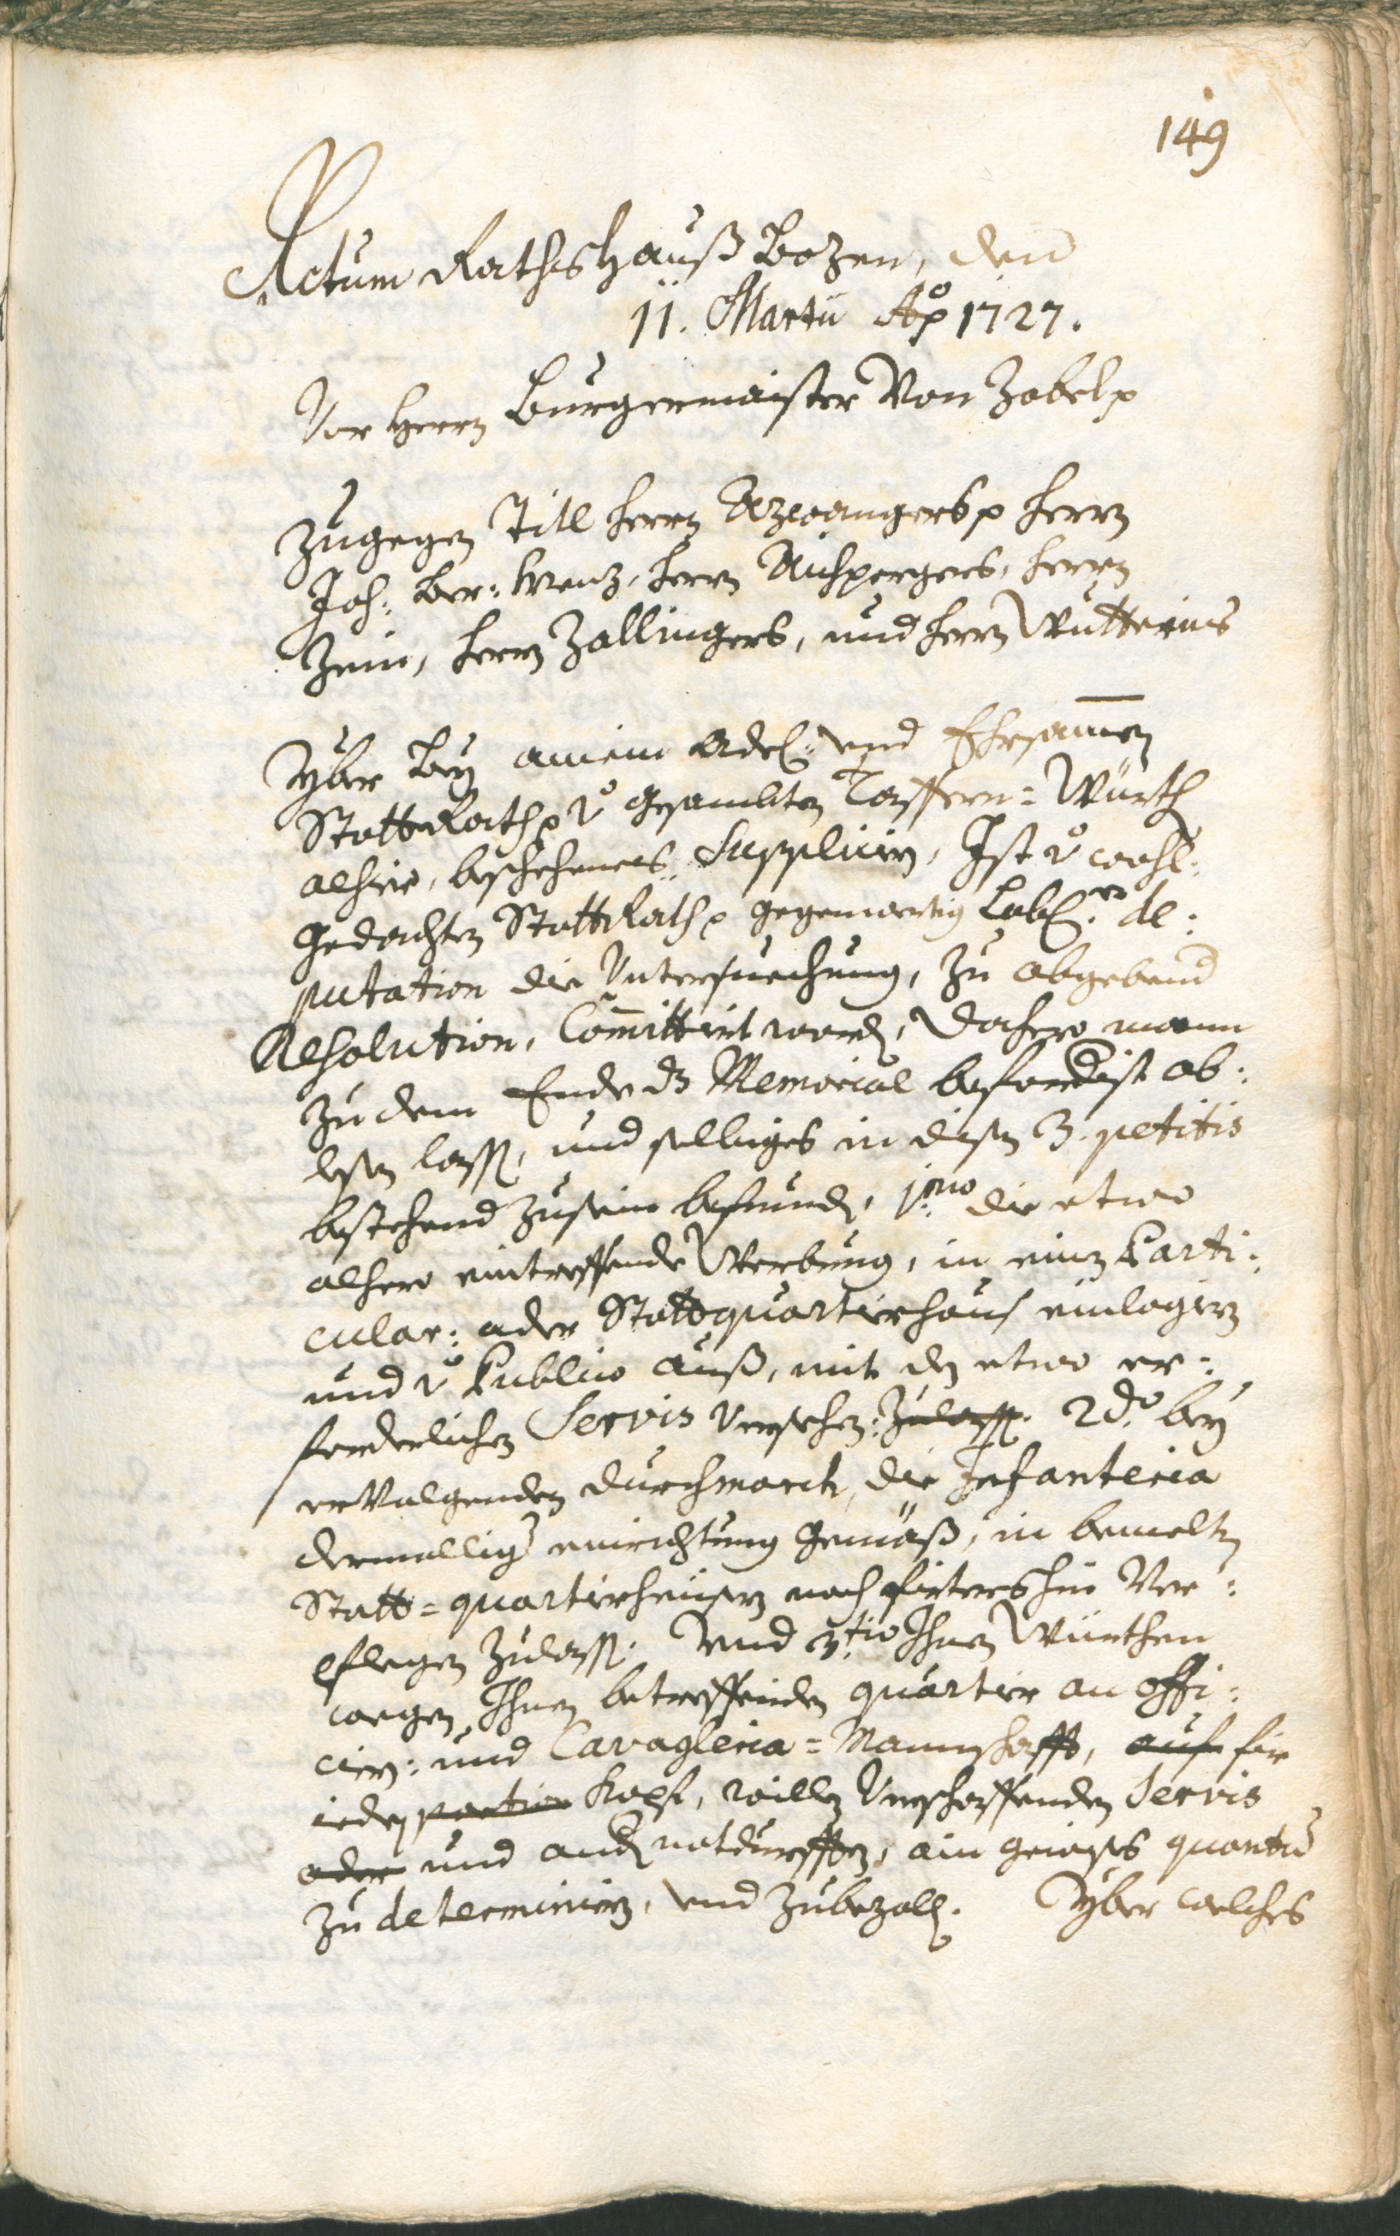 149
Actum Rathshauß Bozen, den
11. Martii Ao 1727.
Vor Herrn Burgermaister Von Zobel p
Zugegen Titl Herrn Azwangers p Herrn
Joh: Ber: Krenz, Herrn Aichpergers, Herrn
Herrn Zallingers, und Herrn
Yber Bey ainem Adel: und Ehrsamen
StattRath p gesambten Taffern-Würth
alhier, beschehenes Supplicirn, Ist wohl-
gedachten StattRath p gegenwertig Lobl:er de:
putation die Untersuechung, zu abgebend
Resolution, Committirt word, Dahero mann
zu dem Ende ds Memorial beforderist ab-
lesen lass, und selbiges in disen 3. petitis
bestehend zusein befund, 1mo die etwo
alhero eintreffende Werbung, in einem Parti:
cular: oder Stattquartierhaus einlogirn
und Publico auß, mit den etwo er:
forderlichen Servis versehen: zulass. 2do bey
ervolgenden durchmarch, die Infanteria
dermallig einrichtung gemäß, in bemelten
Statt-quartierheusern noch firtershin Ver:
pflegen zulass. Und 3tio Ihnen Würthen
wegen Ihnen betreffenden quartier an offi:
cirn: und Cavagleria-Mannschafft, auf fir
ieden portion Kopf, willen Verschaffenden Servis
oder und and notdurfften, ain gewises quantum
zu determinirn, und zubezall. Yber welches